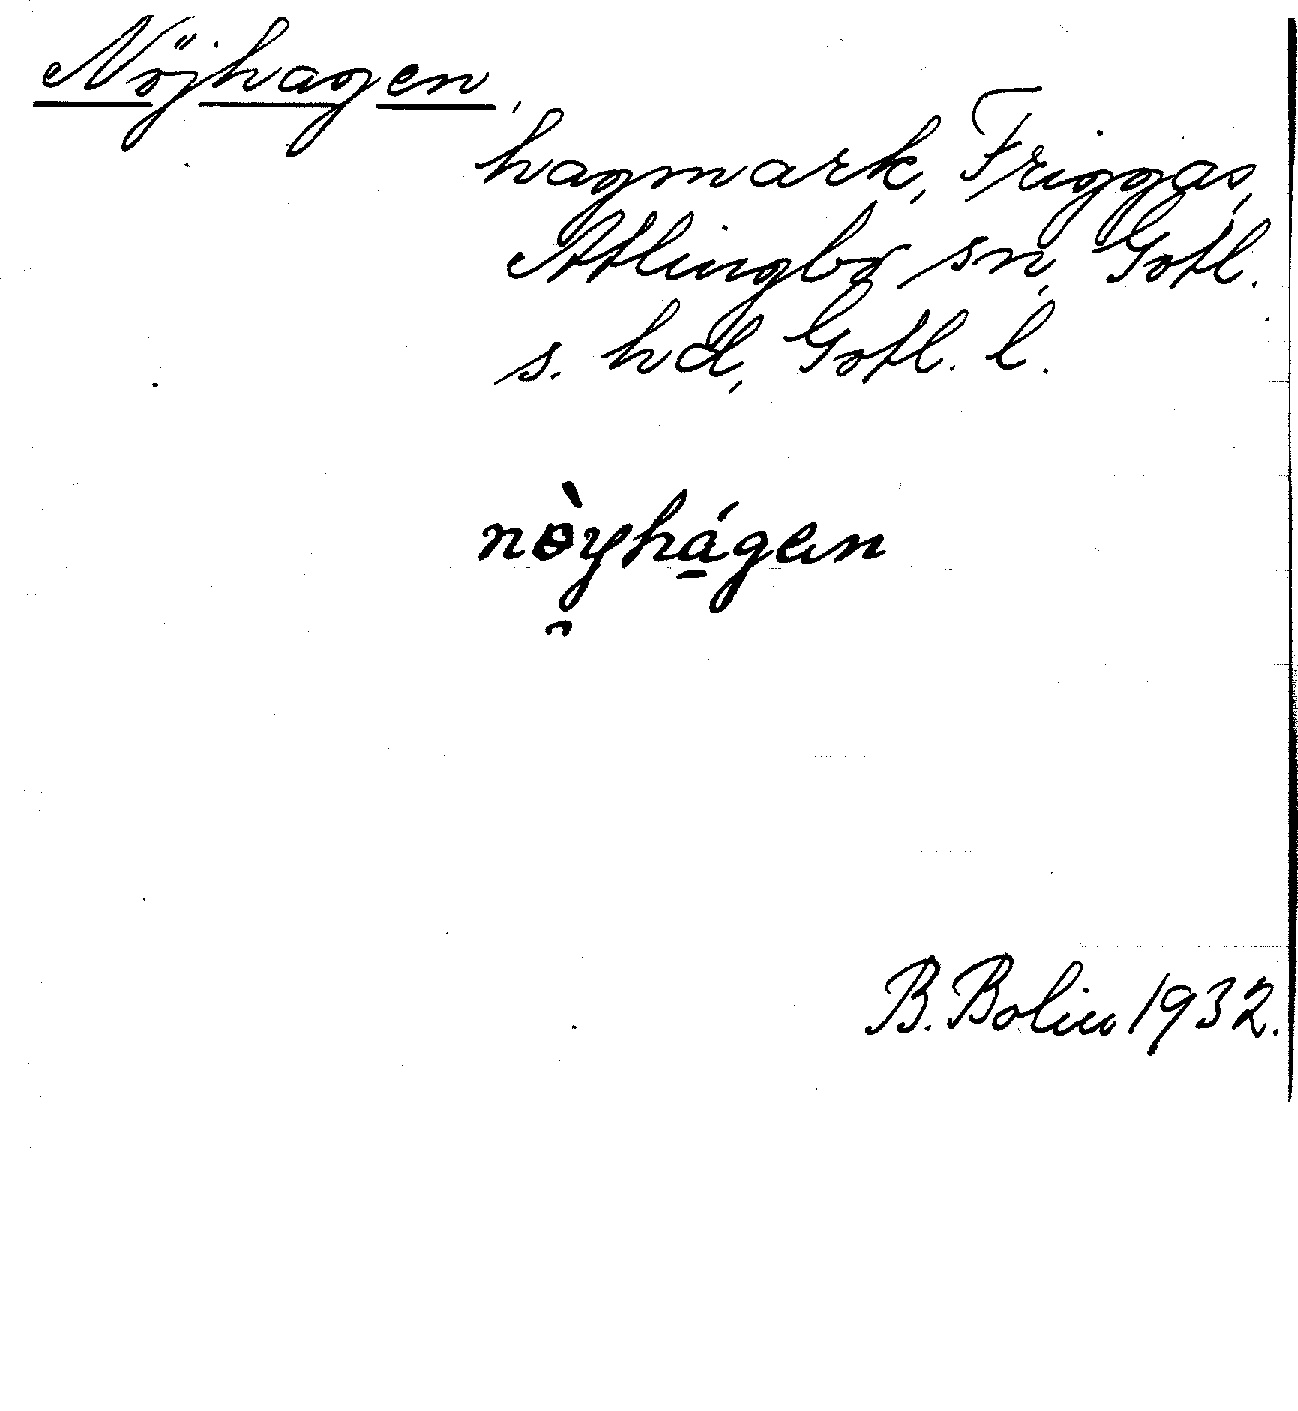 Nöjhagen,
hagmark, Friggas,
Atlingbo sn, Gotl.
s. hd, Gotl. l.
nèy̑há̱gen
B. Bolin 1932.